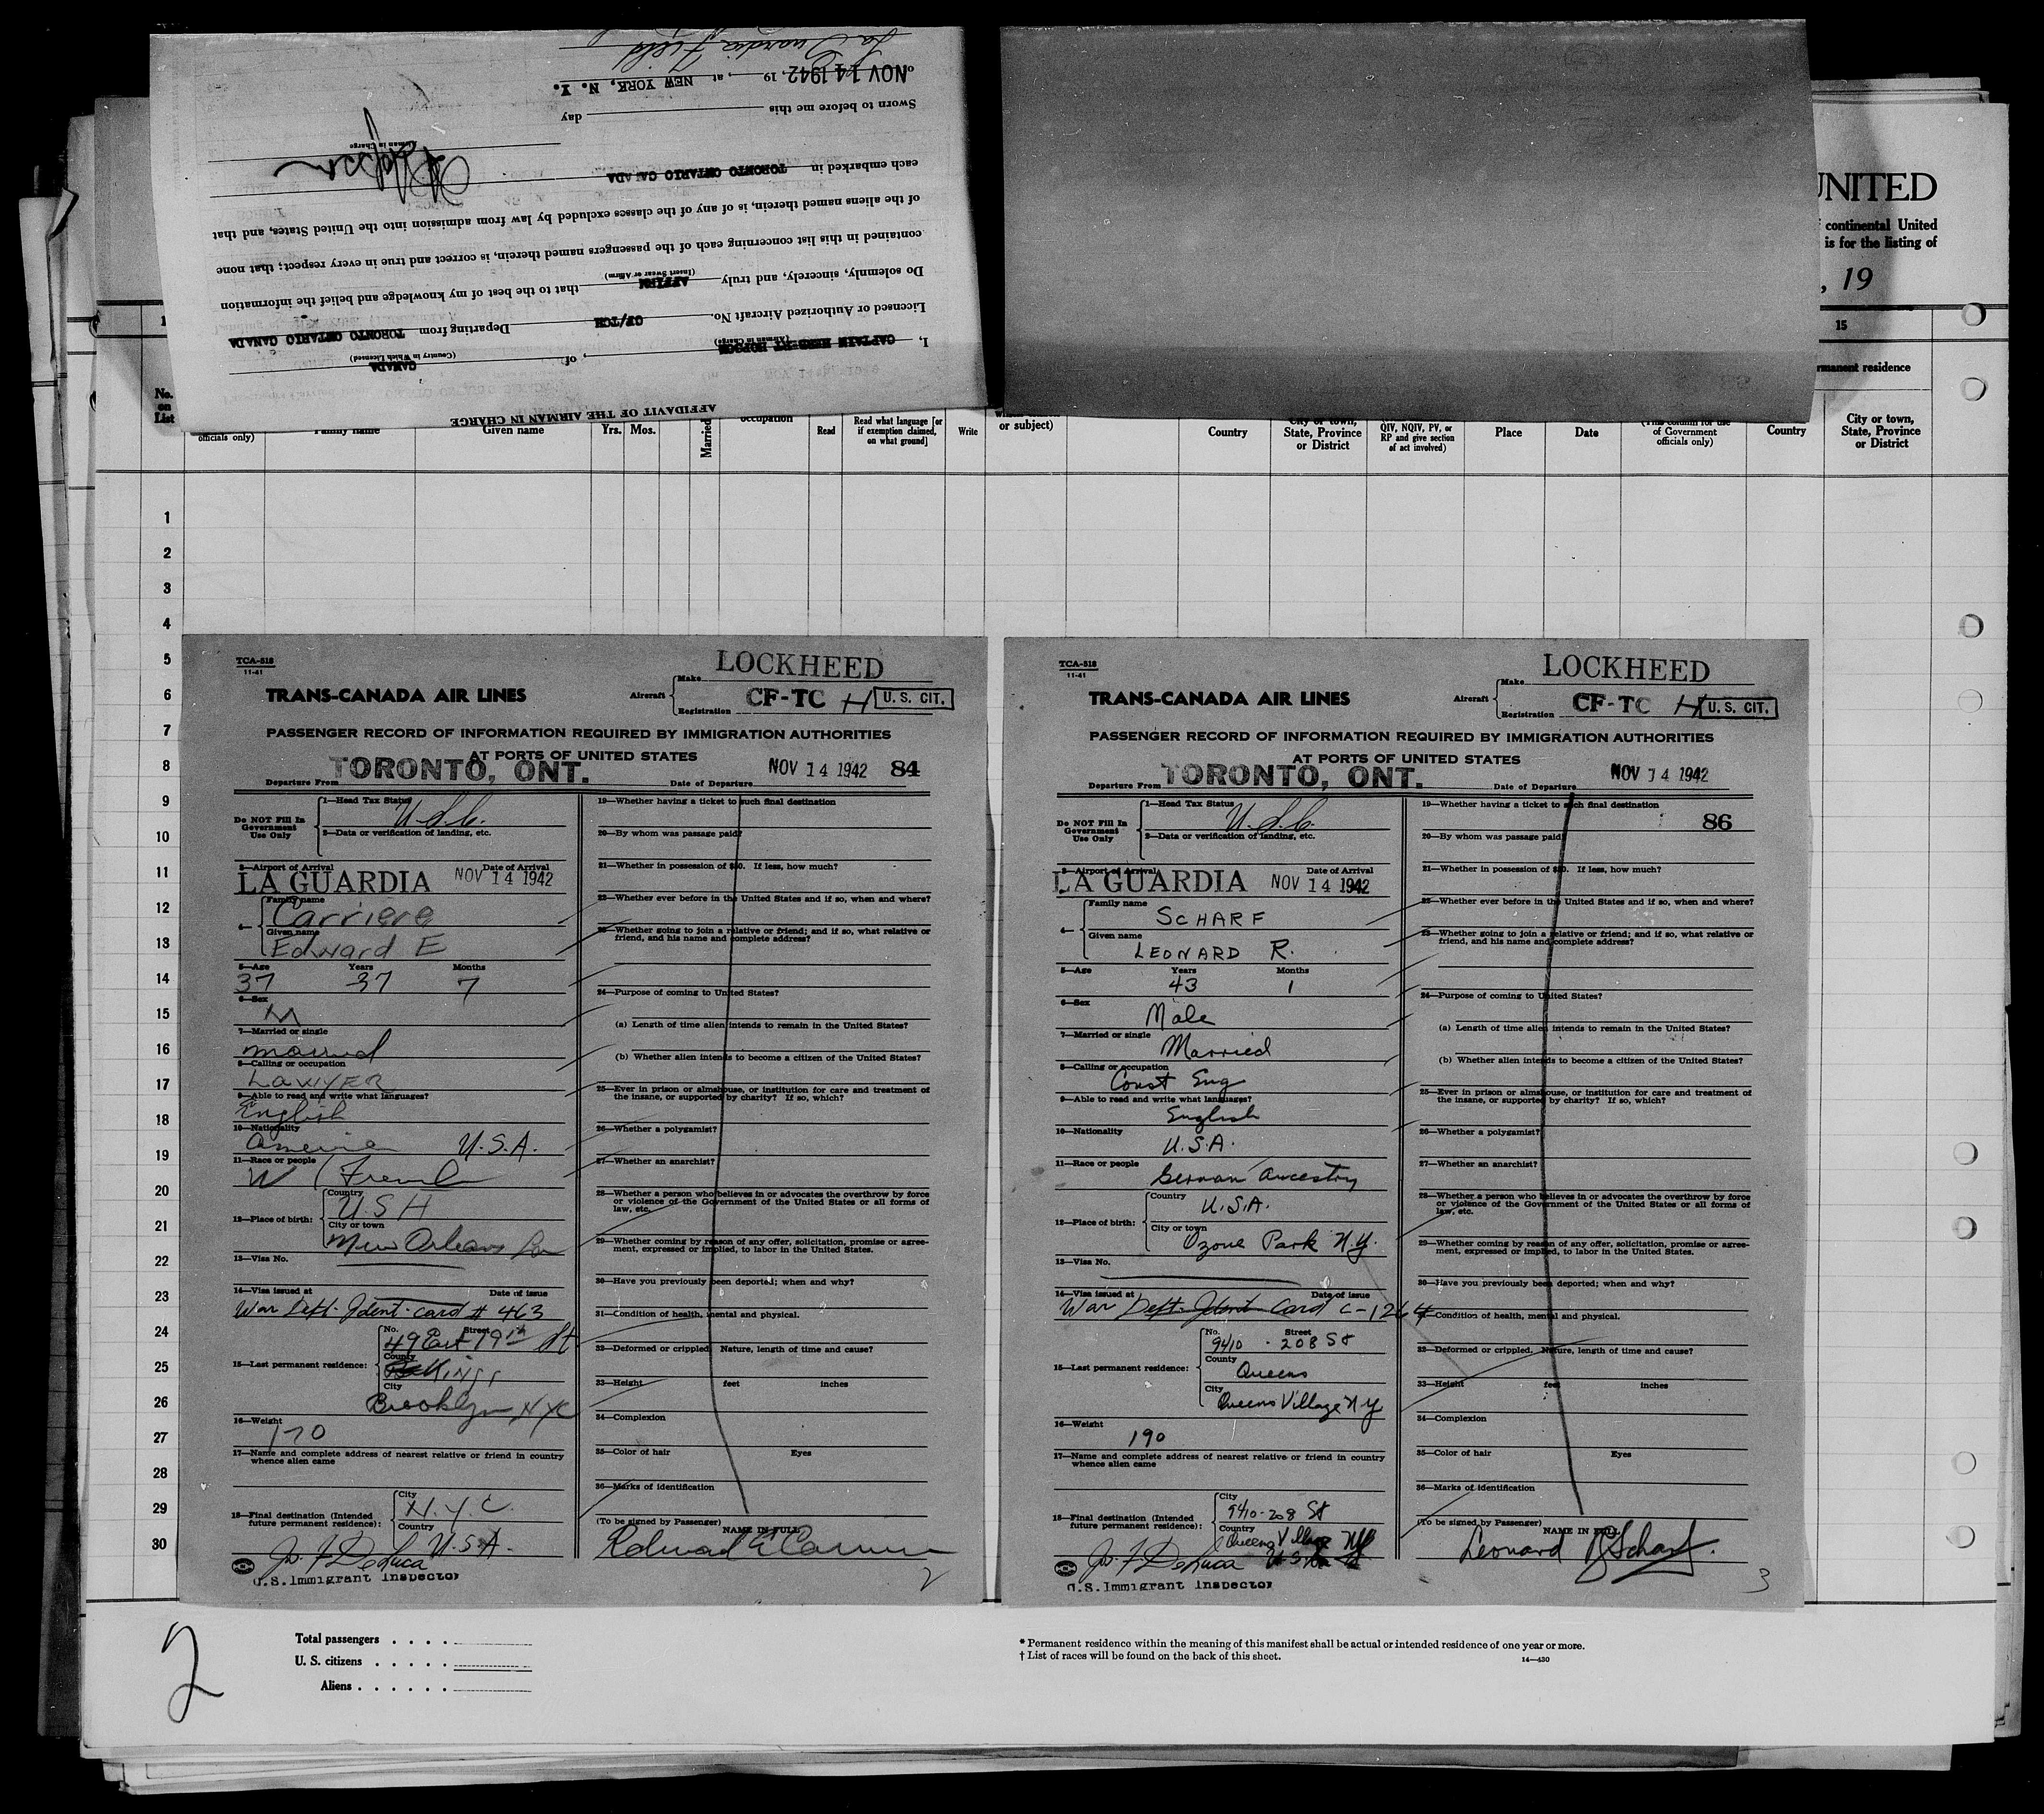 AFFIDAVIT OF THE AIRMAN IN CHARGE
I, CAPTAIN HERBERT HOPSON, of CANADA
(Airman in Charge) (Country in Which Licensed)
Licensed or Authorized Aircraft No. CF/TCH Departing from TORONTO ONTARIO CANADA
Do solemnly, sincerely, and truly AFFIRM that to the best of my knowledge and belief the information
(Insert Swear or Affirm)
contained in this list concerning each of the passengers named therein, is correct and true in every respect; that none
of the aliens named therein, is of any of the classes excluded by law from admission into the United States, and that
each embarked in TORONTO ONTARIO CANADA
Airman in Charge
Sworn to before me this day
of NOV 14 1942, 19 , at NEW YORK, N. Y.
La Guardia Field
UNITED
continental United
is for the listing of
, 19
15
permanent residence
No.
on
List
officials only)
Family name
Given name
Yrs.
Mos.
Married
occupation
Read
Read what language [or
if exemption claimed,
on what ground]
Write
or subject)
Country
City or town,
State, Province
or District
QIV, NQIV, PV, or
RP and give section
of act involved)
Place
Date
(This column for use
of Government
officials only)
Country
City or town,
State, Province
or District
1
2
3
4
5
6
7
8
9
10
11
12
13
14
15
16
17
18
19
20
21
22
23
24
25
26
27
28
29
30
TCA-518
11-41
LOCKHEED
TRANS-CANADA AIR LINES
Aircraft
Make
Registration
CF-TC H
U. S. CIT.
PASSENGER RECORD OF INFORMATION REQUIRED BY IMMIGRATION AUTHORITIES
AT PORTS OF UNITED STATES
Departure From TORONTO, ONT. Date of Departure NOV 14 1942 84
Do NOT Fill In
Government
Use Only
1—Head Tax Status U.S.C.
2—Data or verification of landing, etc.
3—Airport of Arrival Date of Arrival
LA GUARDIA NOV 14 1942
4—
Family name
Carriere
Given name
Edward E
5—Age Years Months
37 37 7
6—Sex
M
7—Married or single
married
8—Calling or occupation
LAWYER
9—Able to read and write what languages?
English
10—Nationality
American U.S.A.
11—Race or people
W / French
12—Place of birth:
Country
U S A
City or town
New Orleans La
13—Visa No.
14—Visa issued at Date of issue
War Dept. Ident. card # 463
15—Last permanent residence:
No. Street
49 East 19th St
County
Kings
City
Brooklyn NYC
16—Weight
170
17—Name and complete address of nearest relative or friend in country
whence alien came
18—Final destination (Intended
future permanent residence):
City
N.Y.C.
Country
U.S.A.
Jos. F. DeLuca
U.S. Immigrant Inspector
19—Whether having a ticket to such final destination
20—By whom was passage paid?
21—Whether in possession of $50. If less, how much?
22—Whether ever before in the United States and if so, when and where?
23—Whether going to join a relative or friend; and if so, what relative or
friend, and his name and complete address?
24—Purpose of coming to United States?
(a) Length of time alien intends to remain in the United States?
(b) Whether alien intends to become a citizen of the United States?
25—Ever in prison or almshouse, or institution for care and treatment of
the insane, or supported by charity? If so, which?
26—Whether a polygamist?
27—Whether an anarchist?
28—Whether a person who believes in or advocates the overthrow by force
or violence of the Government of the United States or all forms of
law, etc.
29—Whether coming by reason of any offer, solicitation, promise or agree-
ment, expressed or implied, to labor in the United States.
30—Have you previously been deported; when and why?
31—Condition of health, mental and physical.
32—Deformed or crippled. Nature, length of time and cause?
33—Height feet inches
34—Complexion
35—Color of hair Eyes
36—Marks of identification
(To be signed by Passenger) NAME IN FULL
Edward E Carriere
2
TCA-518
11-41
LOCKHEED
TRANS-CANADA AIR LINES
Aircraft
Make
Registration
CF-TC H
U. S. CIT.
PASSENGER RECORD OF INFORMATION REQUIRED BY IMMIGRATION AUTHORITIES
AT PORTS OF UNITED STATES
Departure From TORONTO, ONT. Date of Departure NOV 14 1942
Do NOT Fill In
Government
Use Only
1—Head Tax Status U.S.C.
2—Data or verification of landing, etc.
3—Airport of Arrival Date of Arrival
LA GUARDIA NOV 14 1942
4—
Family name
SCHARF
Given name
LEONARD R.
5—Age Years Months
43 1
6—Sex
Male
7—Married or single
Married
8—Calling or occupation
Const Eng
9—Able to read and write what languages?
English
10—Nationality
U.S.A.
11—Race or people
German Ancestry
12—Place of birth:
Country
U.S.A.
City or town
Ozone Park N.Y.
13—Visa No.
14—Visa issued at Date of issue
War Dept. Ident Card C-1264
15—Last permanent residence:
No. Street
9410 - 208 St
County
Queens
City
Queens Village N.Y
16—Weight
190
17—Name and complete address of nearest relative or friend in country
whence alien came
18—Final destination (Intended
future permanent residence):
City
9410-208 St
Country
Queens Village NY
Jos. F. DeLuca
U.S. Immigrant Inspector
19—Whether having a ticket to such final destination
86
20—By whom was passage paid?
21—Whether in possession of $50. If less, how much?
22—Whether ever before in the United States and if so, when and where?
23—Whether going to join a relative or friend; and if so, what relative or
friend, and his name and complete address?
24—Purpose of coming to United States?
(a) Length of time alien intends to remain in the United States?
(b) Whether alien intends to become a citizen of the United States?
25—Ever in prison or almshouse, or institution for care and treatment of
the insane, or supported by charity? If so, which?
26—Whether a polygamist?
27—Whether an anarchist?
28—Whether a person who believes in or advocates the overthrow by force
or violence of the Government of the United States or all forms of
law, etc.
29—Whether coming by reason of any offer, solicitation, promise or agree-
ment, expressed or implied, to labor in the United States.
30—Have you previously been deported; when and why?
31—Condition of health, mental and physical.
32—Deformed or crippled. Nature, length of time and cause?
33—Height feet inches
34—Complexion
35—Color of hair Eyes
36—Marks of identification
(To be signed by Passenger) NAME IN FULL
Leonard R Scharf.
3
2
Total passengers . . . .
U. S. citizens . . . . .
Aliens . . . . . .
* Permanent residence within the meaning of this manifest shall be actual or intended residence of one year or more.
† List of races will be found on the back of this sheet.
14—430